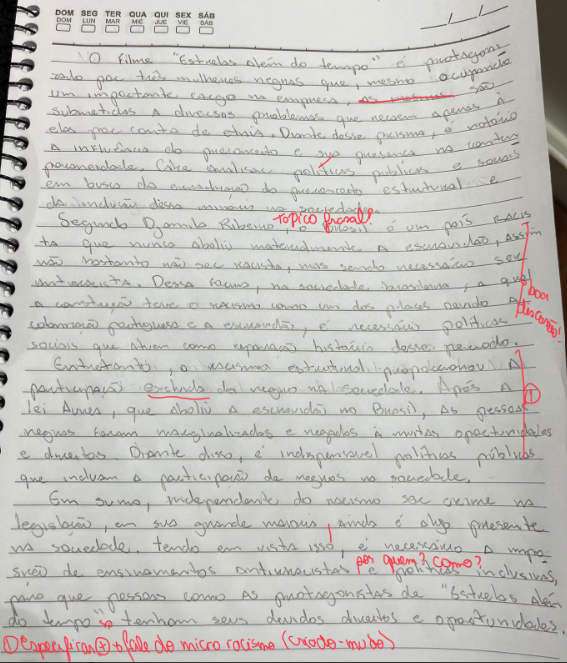 DOM SEG TER QUA QUI SEX SÁB
DOM LUN MAR MIÉ JUE VIE SAB
O filme "Estrelas Além do tempo" é protagoni-
zado por três mulheres negras que, mesmo ocupando
um importante cargo na empresa, as mesmas são
submetidas a diversos problemas que recaem apenas à
elas por conta da etnia. Diante desse prisma, é notório
a influência do preconceito e sua presença na contem
poraneidade. Cabe analisar políticas públicas e sociais
em busca da erradicação do preconceito estrutural e
da inclusão dessa minoria na sociedade.
Tópico frasal!
Segundo Djamila Ribeiro, o Brasil é um país racis
ta que nunca aboliu materialmente a escravidão, assim
não bastanto não ser racista, mas sendo necessário ser
antirracista. Dessa forma na sociedade brasileira, a qual
a construção teve o racismo como um dos pilares devido a
colonização portuguesa e a escravidão, é necessário políticas
sociais que atuem como reparação histórica desse período.
Boa
discussão!
Entretanto, o racismo estrutural proporcionou a
participação excluída do negro na sociedade. Após a
lei Áurea, que aboliu a escravidão no Brasil, as pessoas
negras foram marginalizadas e negadas à muitas oportunidades
e direitos. Diante disso, é indispensável políticas públicas
que incluam a participação de negros na sociedade.
1
Em suma, independente do racismo ser crime na
legislação, em sua grande maioria, ainda é algo presente
na sociedade. tendo em vista isso, é necessário a impo-
sição de ensinamentos antirracistas e políticas inclusivas,
por quem? como?
para que pessoas como as protagonistas de "Estrelas Além
do tempo" tenham seus devidos direitos e oportunidades.
1 especificar + fale do micro racismo (criado-mudo)